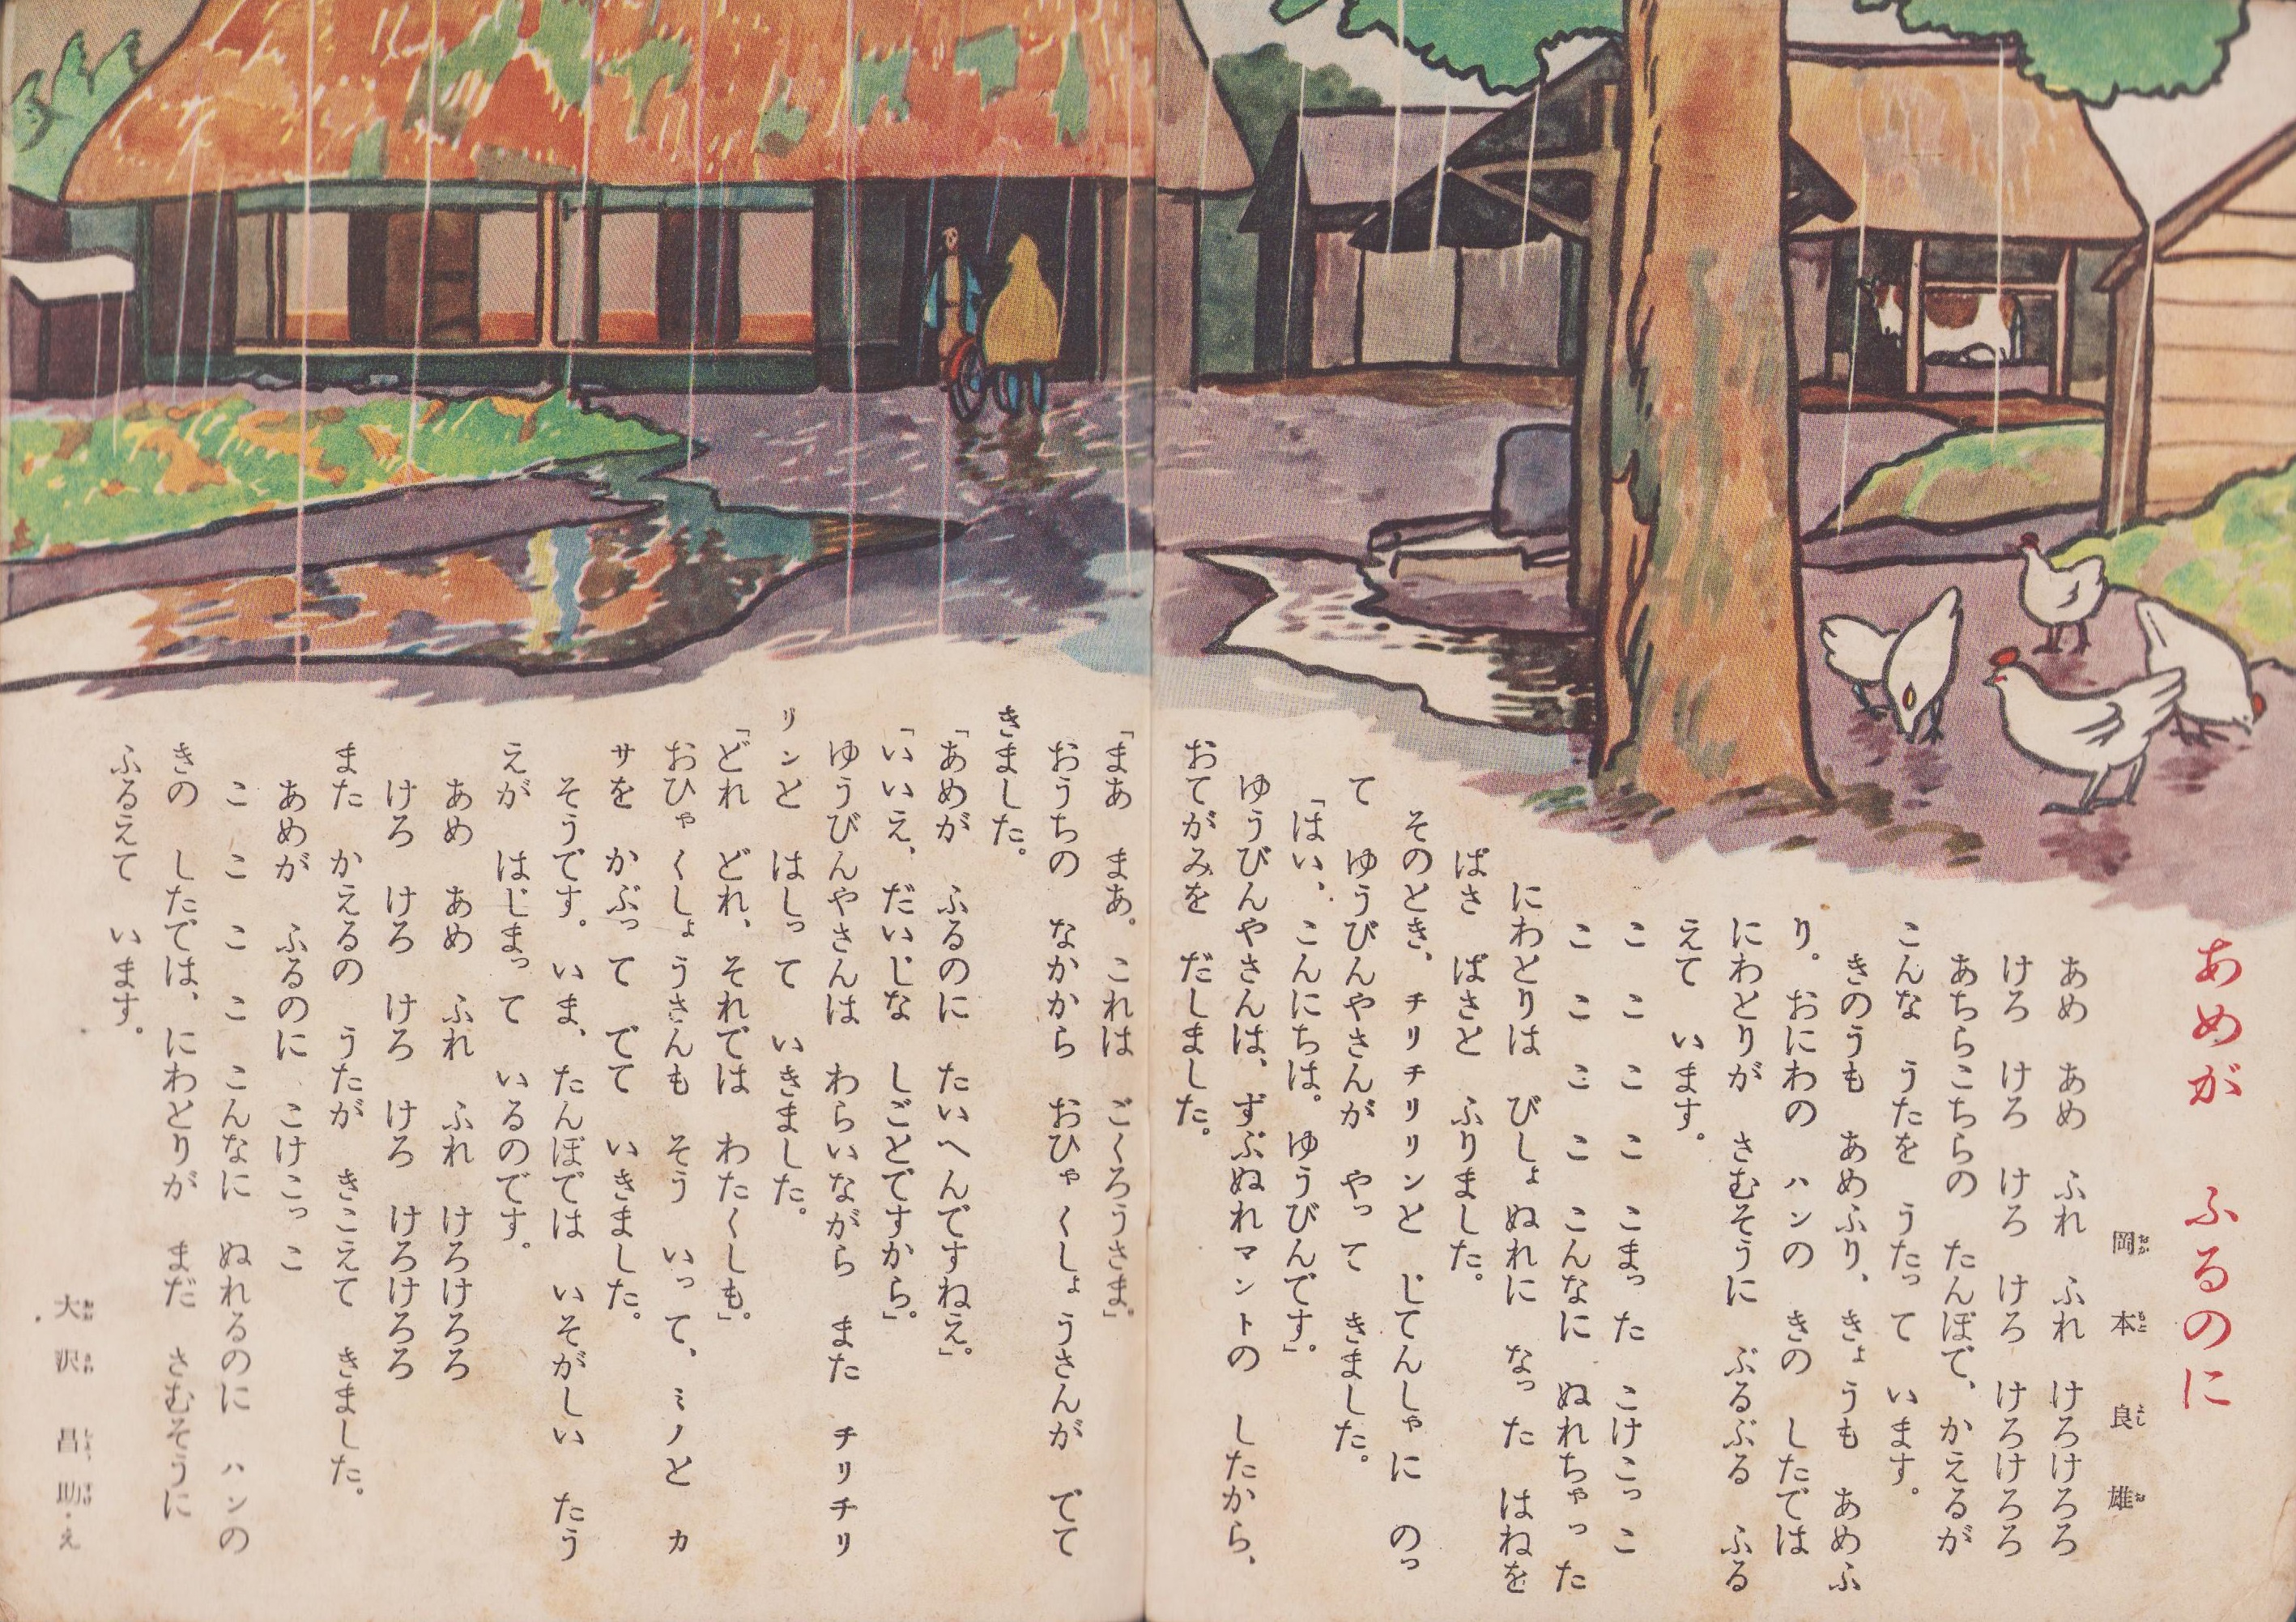 あめが ふるのに
岡本良雄
おかもとよしお
あめ あめ ふれ ふれ けろけろろ
けろ けろ けろ けろ けろけろろ
あちらこちらの たんぼで、かえるが
こんな うたを うたって います。
きのうも あめふり、きょうも あめふ
り。おにわの ハンの きの したでは
にわとりが さむそうに ぶるぶる ふる
えて います。
こ こ こ こ こまった こけこっこ
こ こ こ こ こんなに ぬれちゃった
にわとりは びしょぬれに なった はねを
ぱさ ぱさと ふりました。
そのとき、チリチリリンと じてんしゃに のっ
て ゆうびんやさんが やって きました。
「はい、こんにちは。ゆうびんです」
ゆうびんやさんは、ずぶぬれマントの したから、
おてがみを だしました。
「まあ まあ。これは ごくろうさま」
おうちの なかから おひゃくしょうさんが でて
きました。
「あめが ふるのに たいへんですねえ」
「いいえ、だいじな しごとですから」
ゆうびんやさんは わらいながら また チリチリ
リンと はしって いきました。
「どれ どれ、それでは わたくしも」
おひゃくしょうさんも そう いって、ミノと カ
サを かぶって でて いきました。
そうです。いま、たんぼでは いそがしい たう
えが はじまって いるのです。
あめ あめ ふれ ふれ けろけろろ
けろ けろ けろ けろ けろけろろ
また かえるの うたが きこえて きました。
あめが ふるのに こけこっこ
こ こ こ こ こんなに ぬれるのに ハンの
きの したでは、にわとりが まだ さむそうに
ふるえて います。
大沢昌助・え